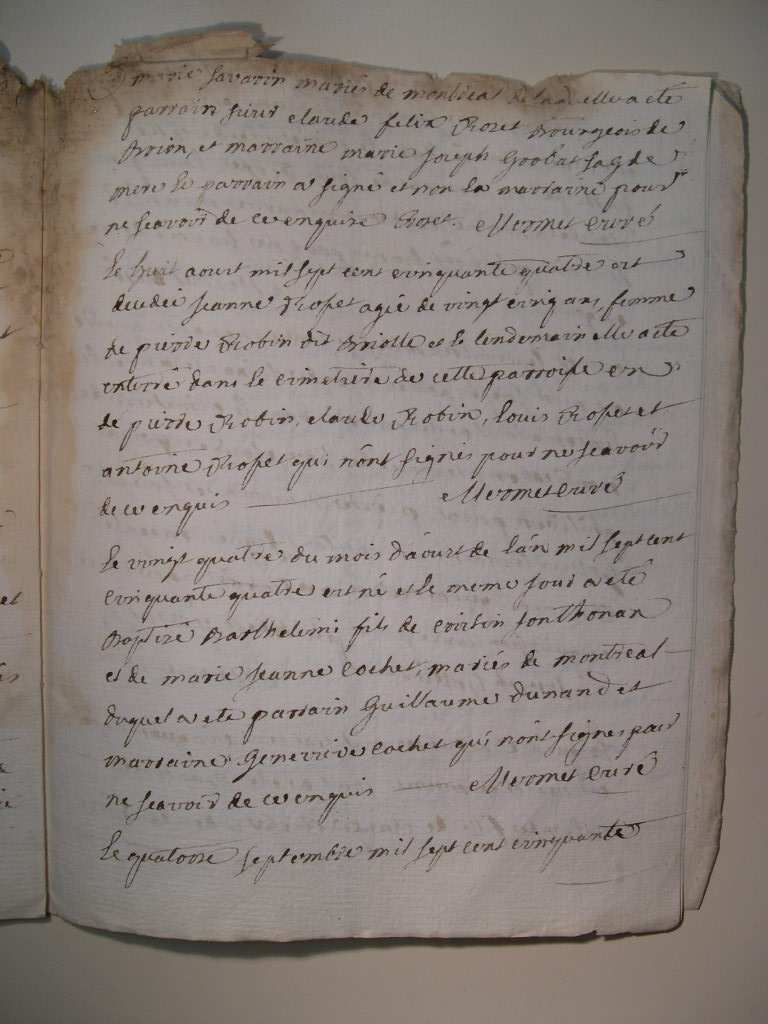 marie savarin mariés de montreal de laquelle a eté
parrain sieur claude felix Rozet Bourgeois de
Brion, et marraine marie joseph Goobat sag de
mere le parrain a signé et non la marraine pour
ne scavoir de ce enquise Rozet. Mermet curé
le huit aoust mil sept cent cinquante quatre est
decedée jeanne Rosset agée de vingt cinq ans, femme
de pierre Robin dit Briolle et le lendemain elle a eté
enterré dans le cimetiere de cette parroisse en
de pierre Robin, claude Robin, louis Rosset et
antoine Rosset qui nônt signés pour ne scavoir
de ce enquis Mermet curé
le vingt quatre du mois dáoust de lán mil sept cent
cinquante quatre est né et le meme jour a eté
Baptizé Barthelemi fils de Jonthonax
et de marie jeanne cochet, mariés de montreal
duquel a eté parrain Guillaume Dunand et
marraine Genevieve cochet qui nônt signes pour
ne scavoir de ce enquis Mermet curé
le quatorze septembre mil sept cent cinquante